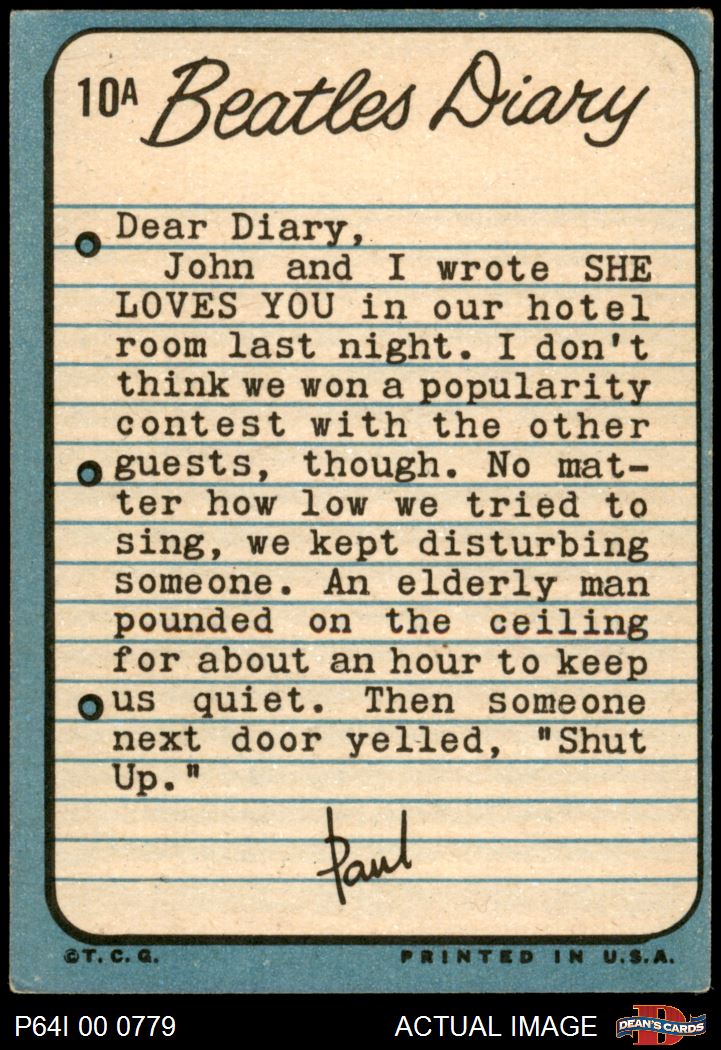 10A Beatles Diary
Dear Diary,
John and I wrote SHE
LOVES YOU in our hotel
room last night. I don't
think we won a popularity
contest with the other
guests, though. No mat-
ter how low we tried to
sing, we kept disturbing
someone. An elderly man
pounded on the ceiling
for about an hour to keep
us quiet. Then someone
next door yelled, "Shut
Up."
Paul
©T.C.G. PRINTED IN U.S.A.
P64I 00 0779 ACTUAL IMAGE D DEAN'S CARDS